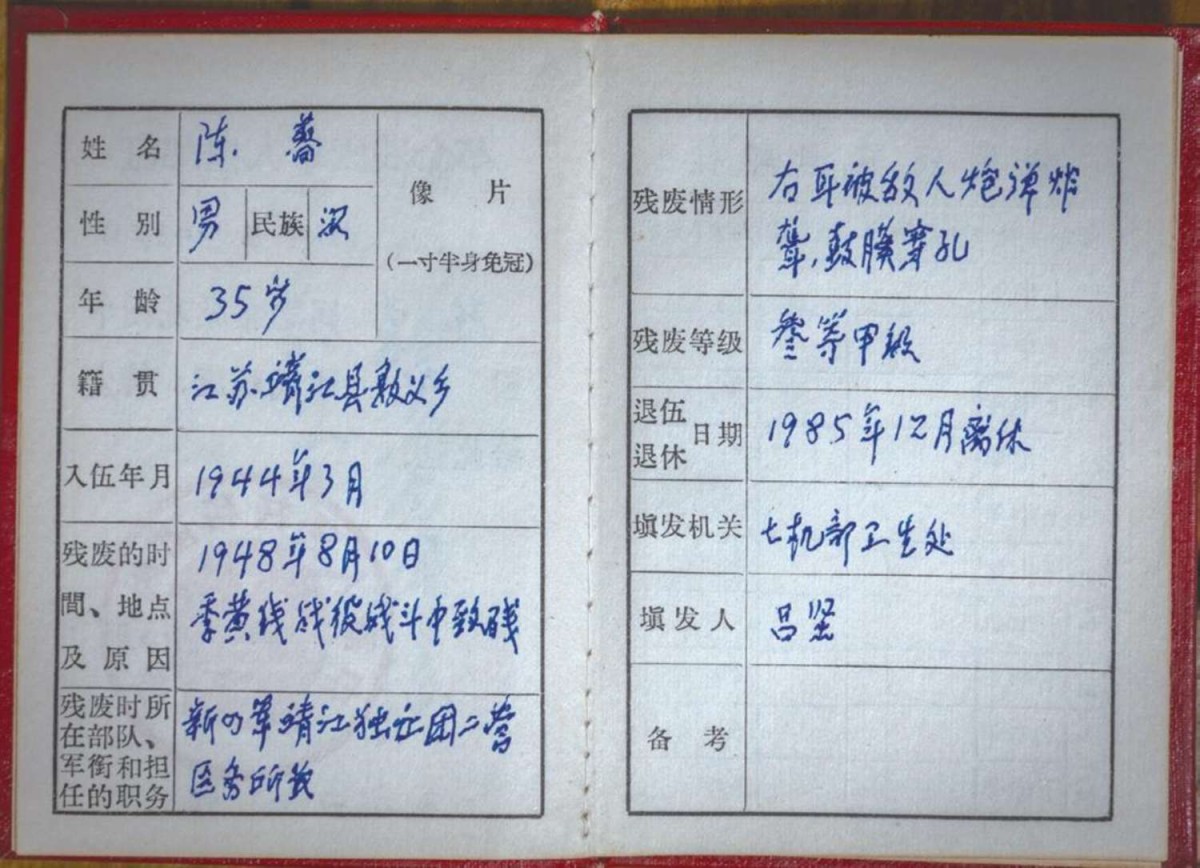 姓 名 陈 蔷
性 别 男 民族 汉
像 片
(一寸半身免冠)
年 龄 35岁
籍 贯 江苏靖江县敦义乡
入伍年月 1944年3月
残废的时 1948年8月10日
間、地点 季黄线战役战斗中致残
及原因
残废时所 新四军靖江独立团二营
在部队、
军衔和担 医务所
任的职务
残废情形 右耳被敌人炮弹炸
聋,鼓膜穿孔
残废等级 叁等甲级
退伍
日期 1985年12月离休
退休
填发机关 七机部卫生处
填发人 吕坚
备 考